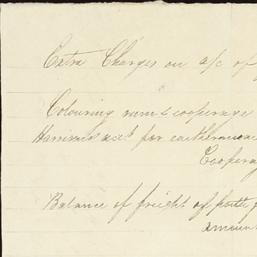 Extra Charges on a/c of
Colouring rum & cooperage
Harrisons acct for earthenware
Cooperag
Balance of freight of
amoun